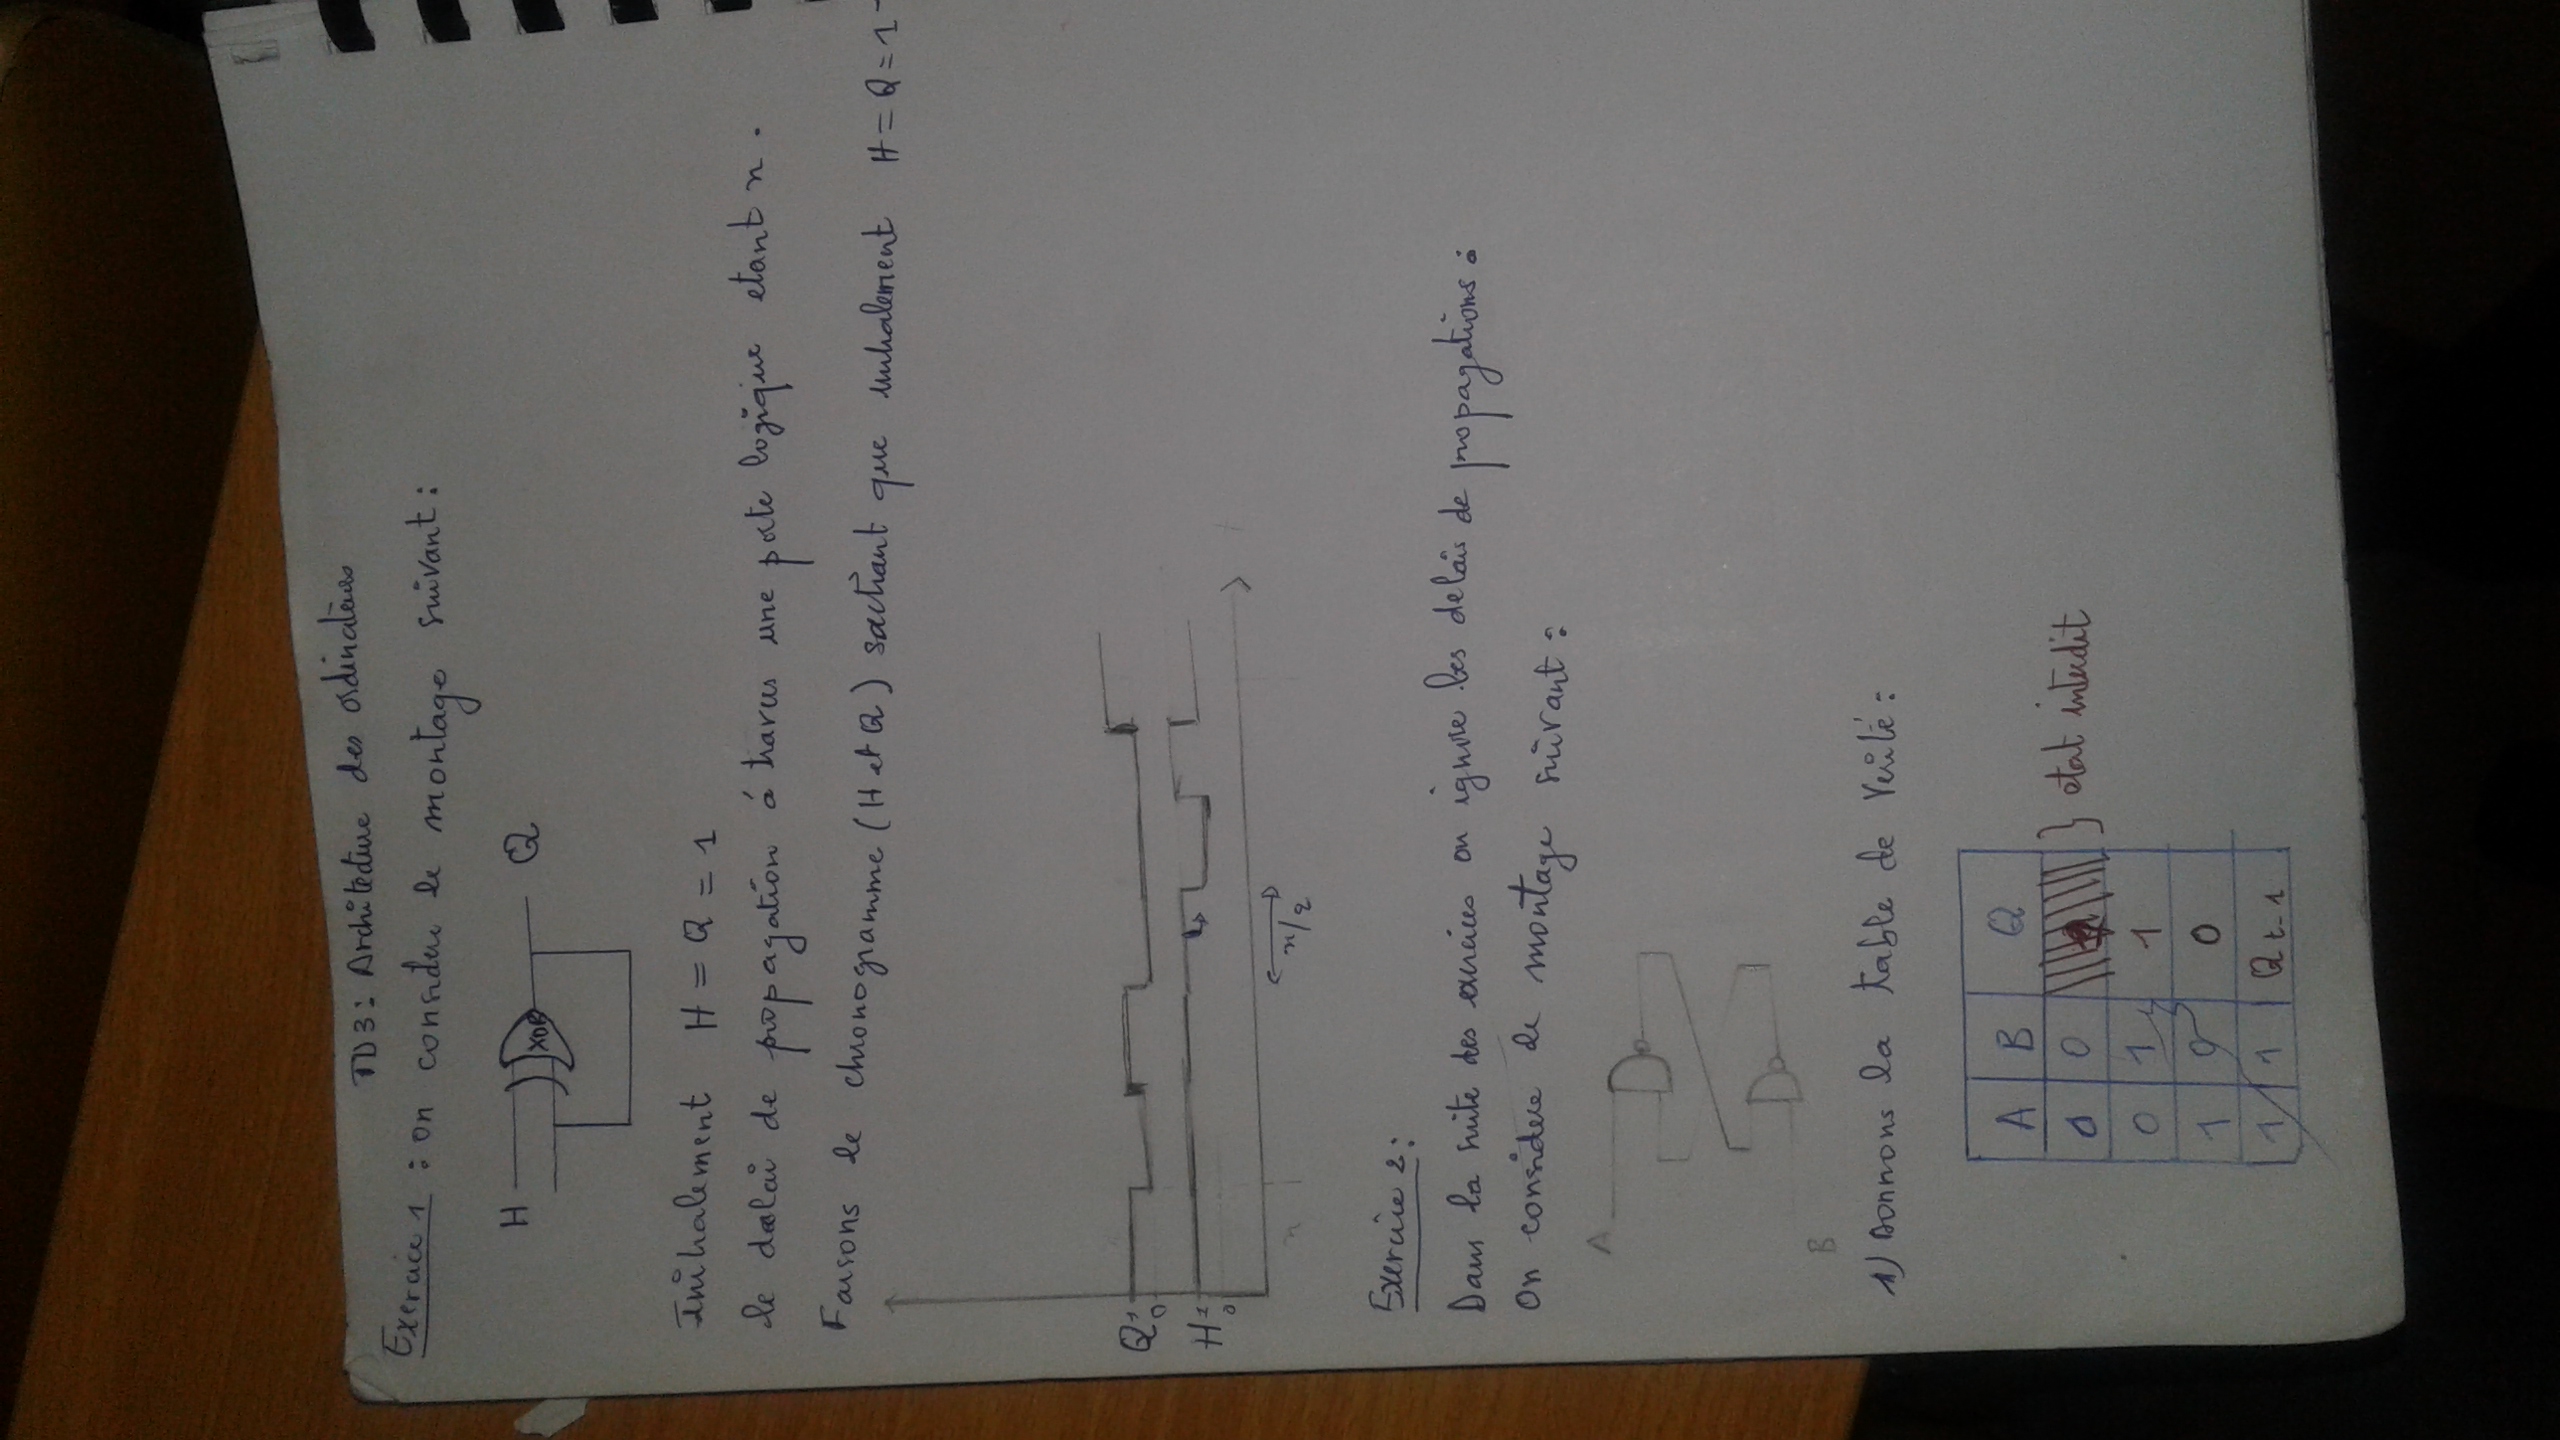 TD3: Architecture des ordinateurs
Exercice 1 : on considere le montage suivant :
H XOR Q
Initialement H = Q = 1
le delai de propagation á travers une porte logique etant n .
Faisons le chronogramme (H et Q) sachant que initialement H = Q = 1
Q 1
0
H 1
0
n
n/2
Exercice 2 :
Dans la suite des exercices on ignore les delais de propagations :
On considere le montage suivant :
A
B
1) Donnons la table de verité :
A B Q
0 0 } etat interdit
0 1 1
1 0 0
1 1 Qt-1